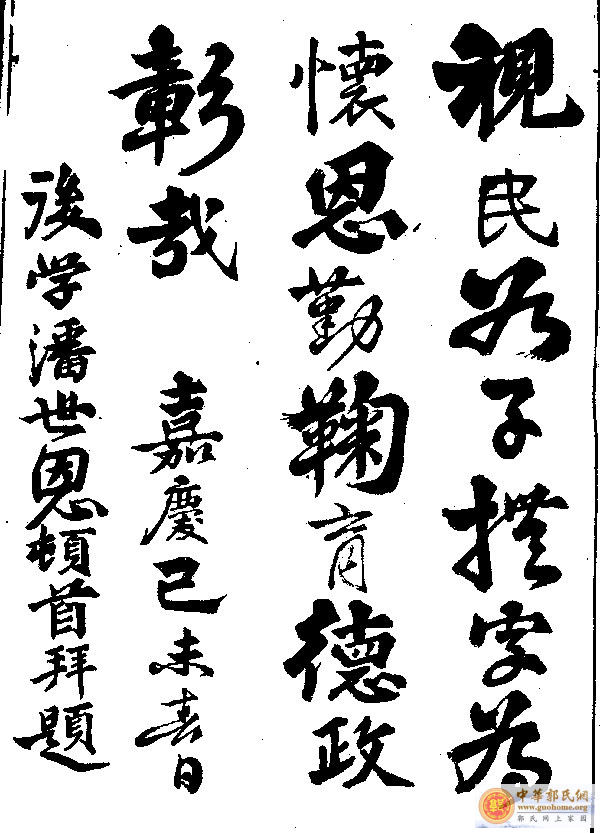 視民若子撫字為
懷恩勤鞠育德政
彰哉 嘉慶己未春日
後学潘世恩頓首拜題
中華郭氏網
www.guohome.org
郭氏網上家園